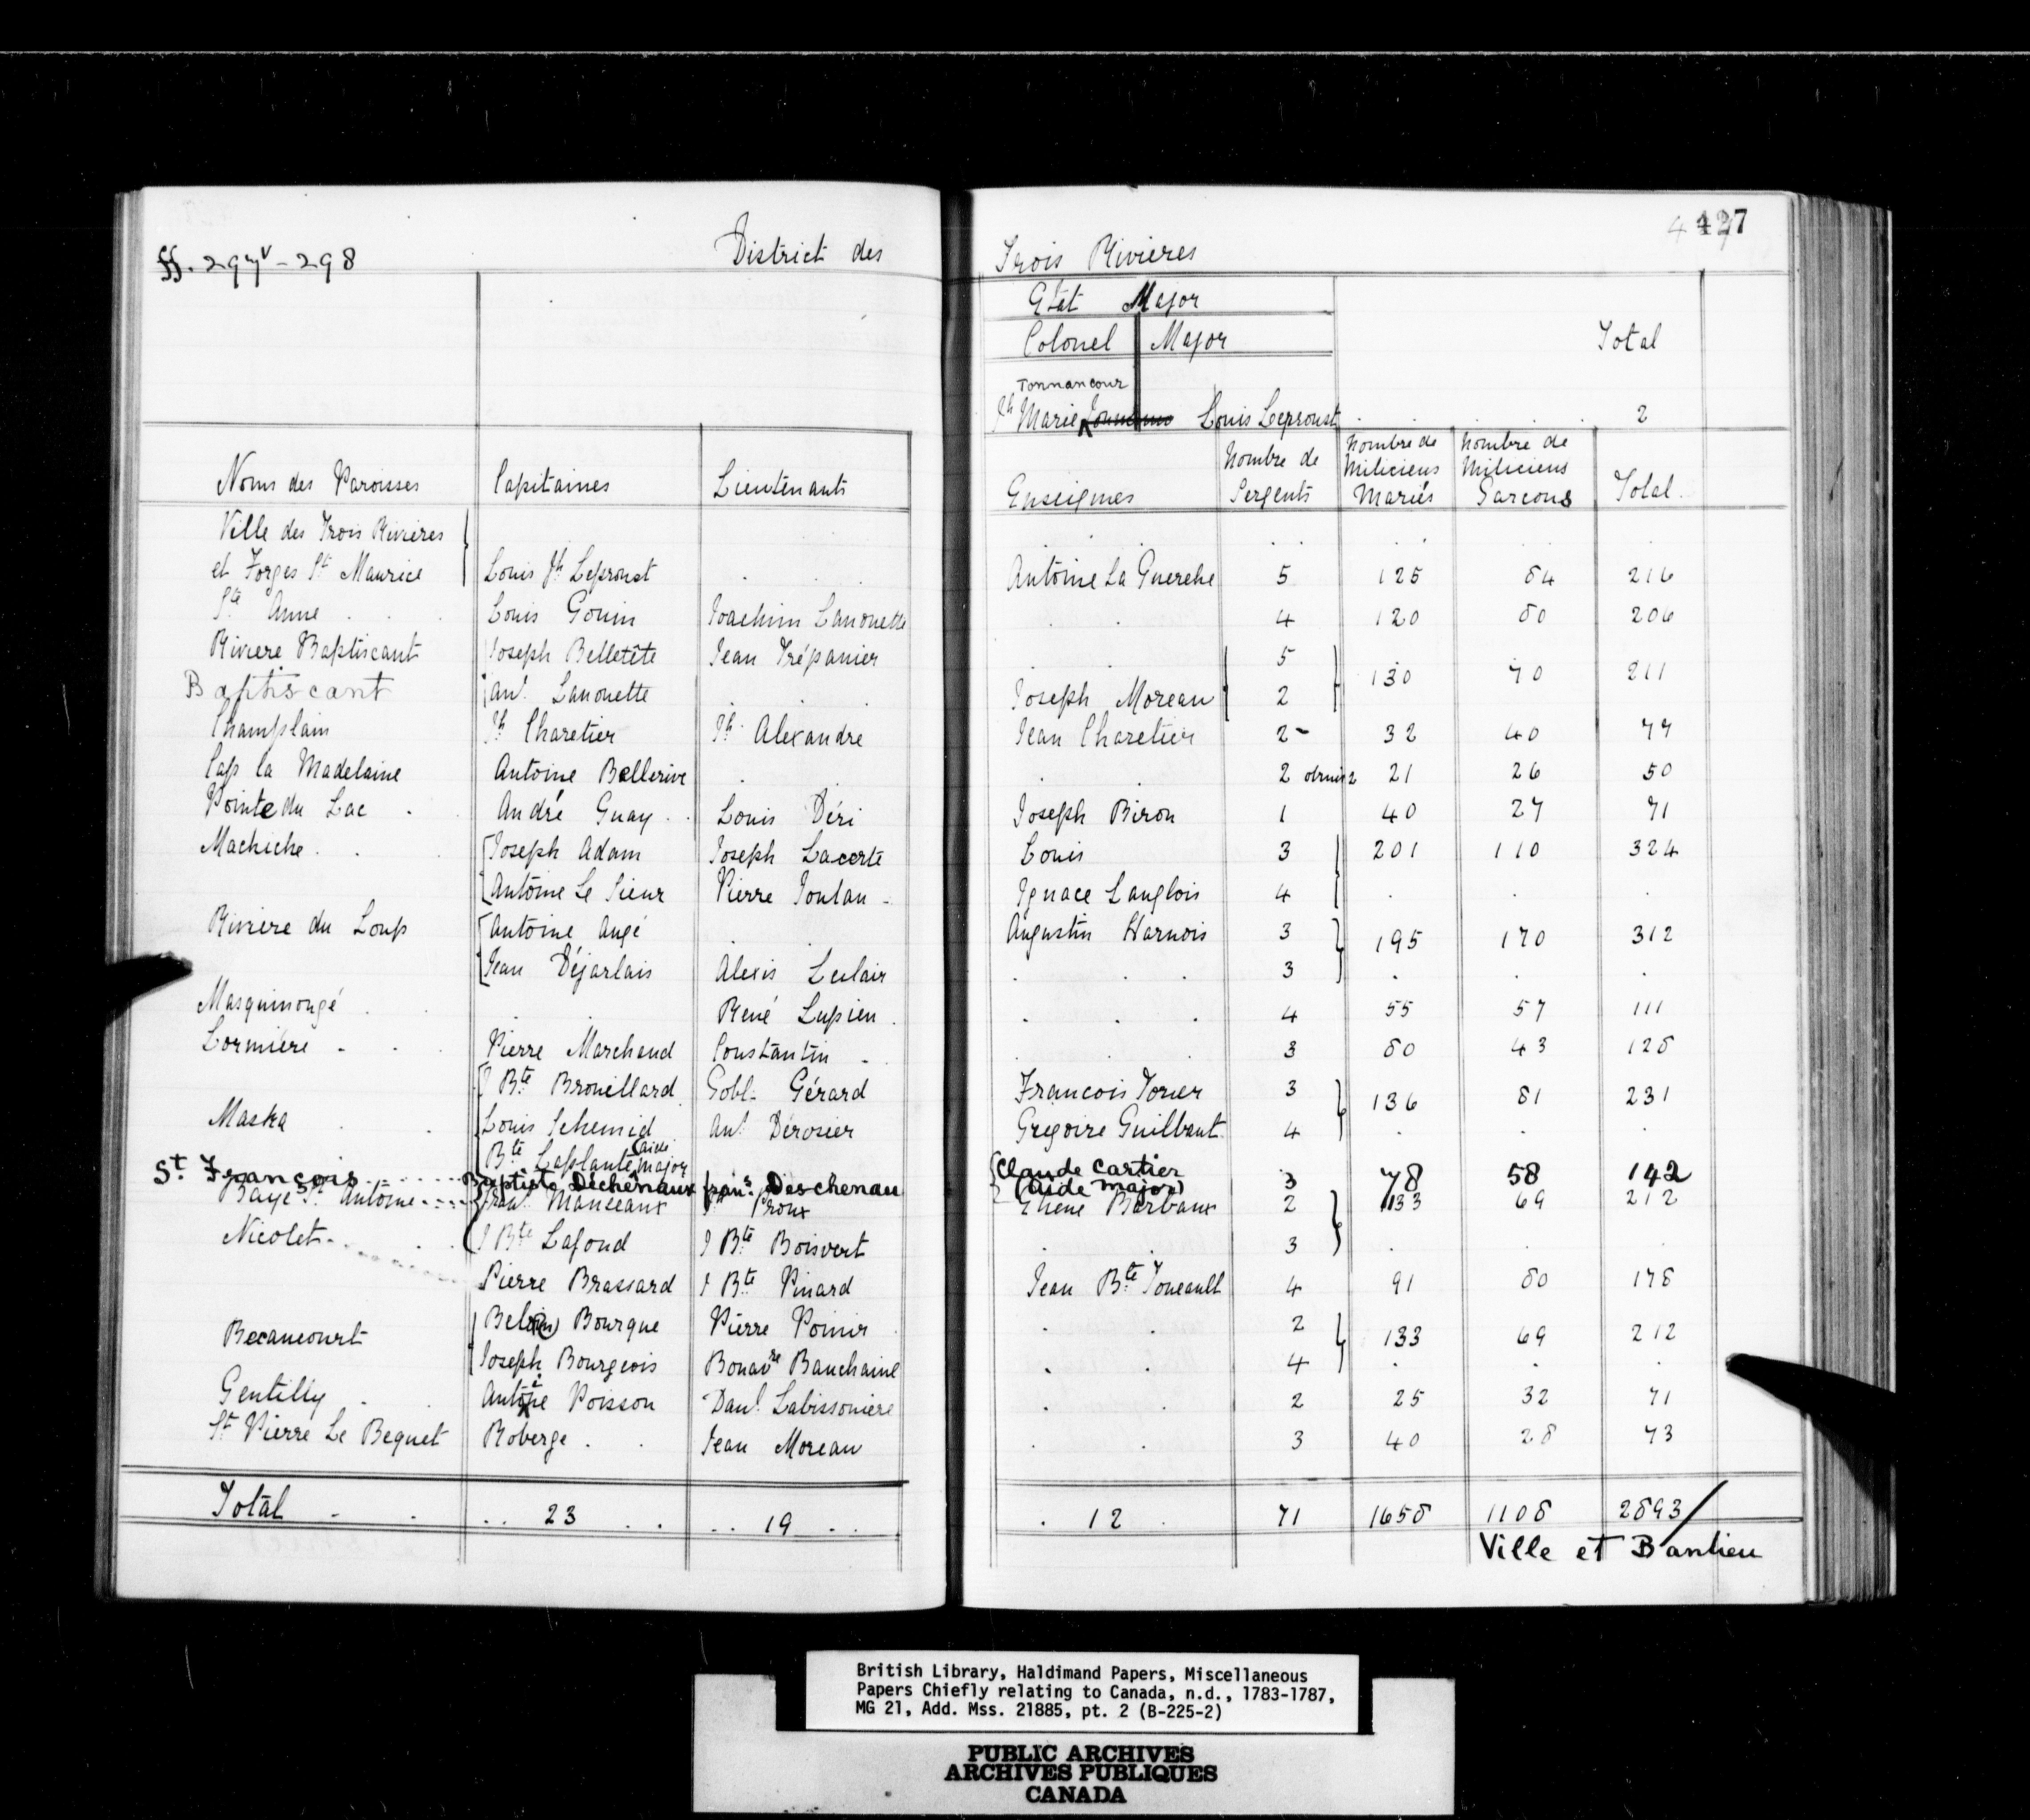 427
ff. 297v - 298
District des Trois Rivieres
Etat Major
Colonel Major Total
Tonnancour
Jh Marie Louis Leproust . . . 2
Noms des Paroisses Capitaines Lieutenants Enseignes Nombre de Sergents Nombre de Miliciens Mariés Nombre de Miliciens Garcons Total
Ville des Trois Rivieres
et Forges St Maurice Louis Jh Leproust . . Antoine La Guerche 5 125 84 216
Ste Anne . . Louis Gouin Joachim Lanouette . . 4 120 80 206
Riviere Baptiscant Joseph Belletête Jean Trépanier . . 5 130 70 211
Baptiscant ant. Lanouette . . Joseph Moreau 2
Champlain Jh Charetier Jh Alexandre Jean Charetier 2 - 32 40 77
Cap la Madelaine Antoine Bellerive . . . 2 21 26 50
Pointe du Lac . André Guay . . Louis Déri Joseph Biron 1 40 27 71
Machiche . . Joseph Adam Joseph Lacerte Louis 3 201 110 324
Antoine Le Sieur Pierre Toutan - Ignace Langlois 4 . . .
Riviere du Loup Antoine Augé . . Augustin Harnois 3 195 170 312
Jean Déjarlais Alexis Leclair . . . 3 . . .
Masquinongé . . . . René Lupien . . . . 4 55 57 111
Lormière - . . Pierre Marchand Constantin - . . . . 3 80 43 128
J Bte Brouillard Gobl. Gérard Francois Torier 3 136 81 231
Maska . . Louis Schemid ant. Dérosier Gregoire Guilbaut 4 . . .
Bte Laplante (aide major
St François Baptiste Dechênaux frans. Deschenau Claude Cartier (aide major) 3 78 58 142
Baye St Antoine ---- fran. Manseaux Jh Proux Etiene Barbaux 2 133 69 212
Nicolet - . . J Bte Lafond J Bte Boisvert . . 3 . . .
Pierre Brassard J Bte Pinard Jean Bte Toucault 4 91 80 178
Becancourt Bel(on) Bourque Pierre Poirier . . . 2 133 69 212
Joseph Bourgeois Bonavre Bauchaine . . 4 . . .
Gentilly . . Antoine Poisson Danl. Labissoniere . . 2 25 32 71
St Pierre Le Bequet Roberge . . Jean Moreau . . 3 40 28 73
Total - . . . 23 . . . . 19 . . . 12 . 71 1658 1108 2893
Ville et Banlieu
British Library, Haldimand Papers, Miscellaneous
Papers Chiefly relating to Canada, n.d., 1783-1787,
MG 21, Add. Mss. 21885, pt. 2 (B-225-2)
PUBLIC ARCHIVES
ARCHIVES PUBLIQUES
CANADA